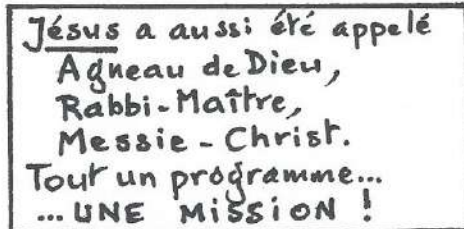 Jésus a aussi été appelé
Agneau de Dieu,
Rabbi-Maître,
Messie-Christ.
Tout un programme...
...UNE MiSSiON !